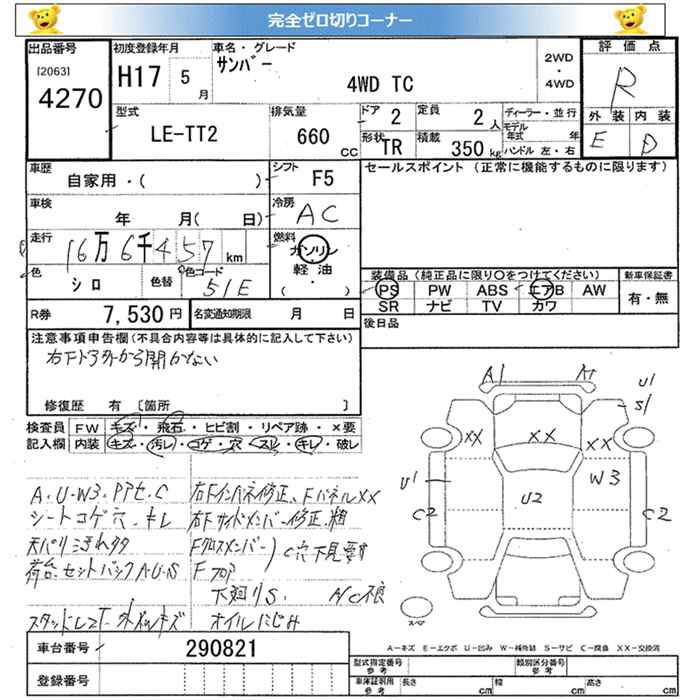 完全ゼロ切りコーナー
出品番号
[2063]
4270
初度登録年月
H17 5月
車名・グレード
サンバー
4WD TC
2WD
・
4WD
評価点
R
外装 内装
E D
型式
LE-TT2
排気量
660 cc
ドア 2
定員 2人
形状 TR
積載 350kg
ディーラー・並行
モデル年式 年
ハンドル 左・右
車歴
自家用・( )
シフト
F5
セールスポイント (正常に機能するものに限ります)
車検
年 月( 日)
冷房
AC
走行
16万6千457 km
燃料
ガソリン
軽油
( ・ )
色
シロ
色替
色コード
51E
装備品 (純正品に限り○をつけてください)
新車保証書
PS PW ABS エアB AW
SR ナビ TV カワ
有・無
R券 7,530円
名変通知期限 月 日
後日品
注意事項申告欄(不具合内容等は具体的に記入して下さい)
右Fドア外から開かない
修復歴 有 [箇所 ]
検査員 FW キズ・飛石・ヒビ割・リペア跡・×要
記入欄 内装 キズ・汚レ・コゲ・穴・スレ・キレ・破レ
A・U・W3・
シートコゲ穴・キレ
荷台・セットバックA・U・S
右Fインパネ修正、FパネルXX
右Fサイドメンバー修正、粗
Fクロスメンバー
Fフロア
C穴下見要す
下廻りS
オイルにじみ
A1
U1
S1
XX
XX
XX
U1
W3
U2
C2
C2
スペア
A-キズ E-エクボ U-凹み W-補修跡 S-サビ C-腐食 XX-交換済
車台番号 290821
登録番号
型式指定番号
参考
類別区分番号
参考
車庫証明用
参考
長さ cm
幅 cm
高さ cm